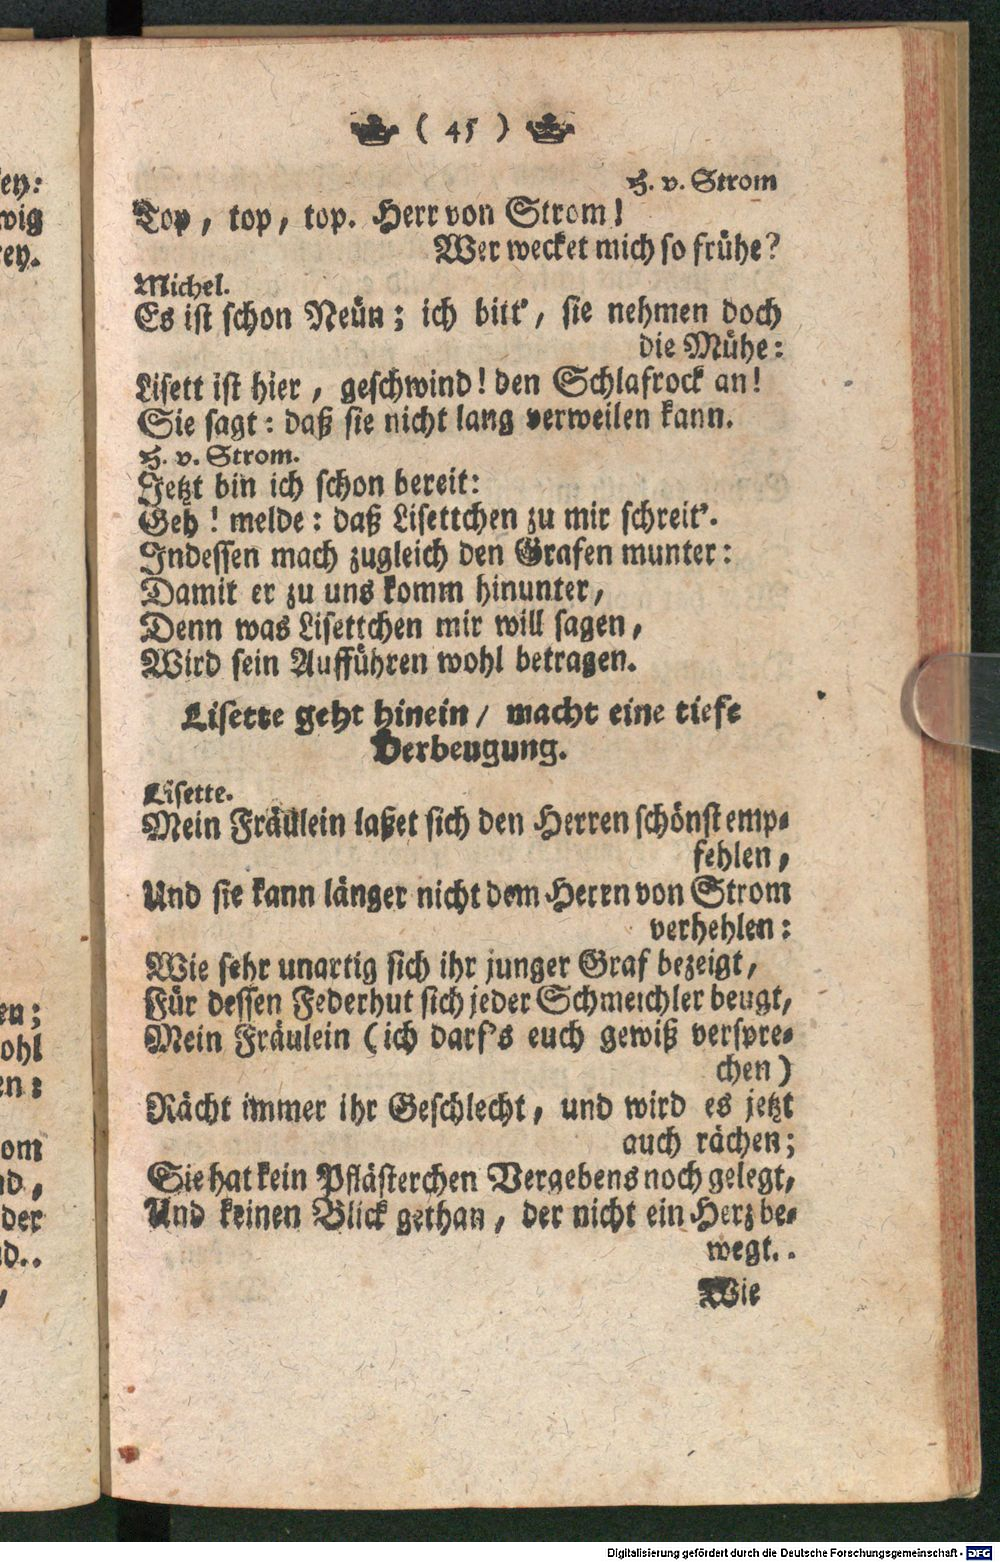 ( 45 )
H. v. Strom
Top, top, top. Herr von Strom!
Wer wecket mich so frühe?
Michel.
Es ist schon Neün; ich bitt', sie nehmen doch
die Mühe:
Lisett ist hier, geschwind! den Schlafrock an!
Sie sagt: daß sie nicht lang verweilen kann.
H. v. Strom.
Jetzt bin ich schon bereit:
Geh! melde: daß Lisettchen zu mir schreit'.
Indessen mach zugleich den Grafen munter:
Damit er zu uns komm hinunter,
Denn was Lisettchen mir will sagen,
Wird sein Aufführen wohl betragen.
Lisette geht hinein / macht eine tiefe
Verbeugung.
Lisette.
Mein Fräulein laßet sich den Herren schönst emp-
fehlen,
Und sie kann länger nicht dem Herrn von Strom
verhehlen:
Wie sehr unartig sich ihr junger Graf bezeigt,
Für dessen Federhut sich jeder Schmeichler beugt,
Mein Fräulein (ich darf's euch gewiß verspre-
chen)
Rächt immer ihr Geschlecht, und wird es jetzt
auch rächen;
Sie hat kein Pflästerchen Vergebens noch gelegt,
Und keinen Blick gethan, der nicht ein Herz be-
wegt..
Wie
Digitalisierung gefördert durch die Deutsche Forschungsgemeinschaft - DFG